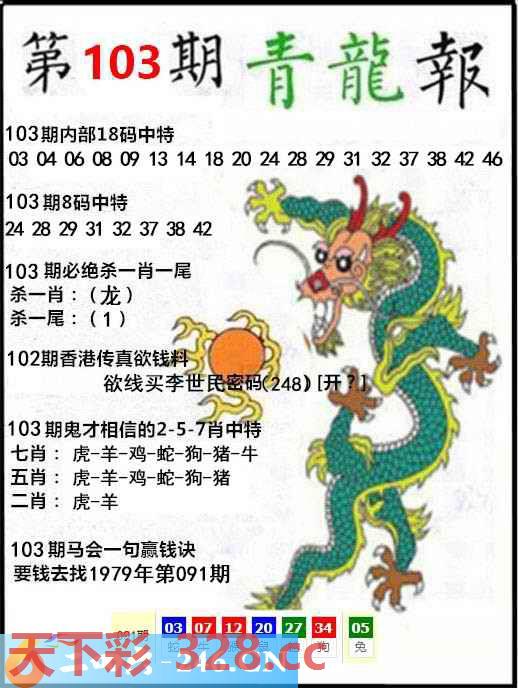 第103期 青龍報
103期内部18码中特
03 04 06 08 09 13 14 18 20 24 28 29 31 32 37 38 42 46
103期8码中特
24 28 29 31 32 37 38 42
103期必绝杀一肖一尾
杀一肖：（龙）
杀一尾：（1）
102期香港传真欲钱料
欲线买李世民密码(248)[开?]
103期鬼才相信的2-5-7肖中特
七肖：虎-羊-鸡-蛇-狗-猪-牛
五肖：虎-羊-鸡-蛇-狗-猪
二肖：虎-羊
103期马会一句赢钱诀
要钱去找1979年第091期
091期 03 07 12 20 27 34 05
蛇 牛 猴 鼠 狗 兔
天下彩-328.cc